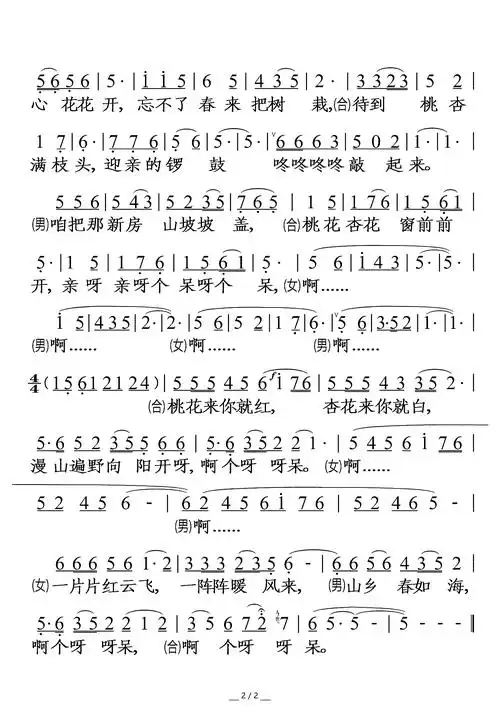 5656|5·|i i5|6 5|435|2·|3323|5 2|
心 花花 开, 忘不了 春 来 把树 栽,(合)待到 桃 杏
1 7|6·|776|5 6|5·|5·|6663|502|1·|1·|
满 枝 头, 迎亲的 锣 鼓 咚咚咚咚 敲 起 来。
556|543|235|765|1 5|176|1561|
(男)咱把那 新 房 山坡坡 盖, (合)桃 花 杏花 窗前前
5·|1 5|176|1561|5·|5 6|i43|5·|5·|
开, 亲 呀 亲呀个 呆呀个 呆, (女)啊……
i 5|435|2·|2·|5 2|5 2|1 7|6·|5 6|3·52|1·|1·|
(男)啊…… (女)啊…… (男)啊……
4/4 (1561 2124)|555 456 i76|555 4532|
(合)桃花来你就红, 杏花来你就白,
5·652 355 66|5·6352 1·|5 456 i76|
漫山遍野向 阳开呀, 啊个呀 呀呆。 (女)啊……
52 45 6 -|62 456 i76|52 45 6 -|
(男)啊……
666 561·2|333 235 6 -|6656 4352|
(女)一片片红云飞, 一阵阵暖 风来, (男)山乡 春如 海,
5·6352 212|335672 7|6 5·5 -|5 - - -‖
啊个呀 呀呆, (合)啊 个呀 呀 呆。
2 / 2